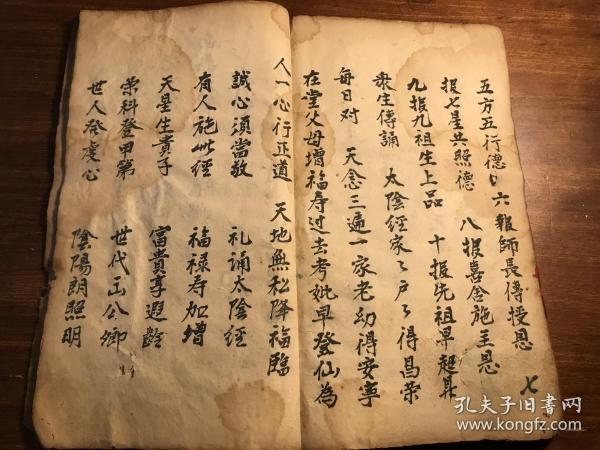 五方五行德 六報師長傳授恩
报七星共照德 八报喜舍施主恩
九报九祖生上品 十报先祖早超昇
衆生傳誦 太陰經家々户々得昌荣
每日对 天念三遍一家老幼得安寧
在堂父母增福寿过去考妣早登仙為
人一心行正道 天地無私降福臨
誠心須當敬 礼誦太陰經
有人施此經 福禄寿加增
天星生貴子 富貴享遐龄
荣科登甲第 世代出公卿
世人發虔心 陰陽朗照明
七
孔夫子旧书网
www.kongfz.com